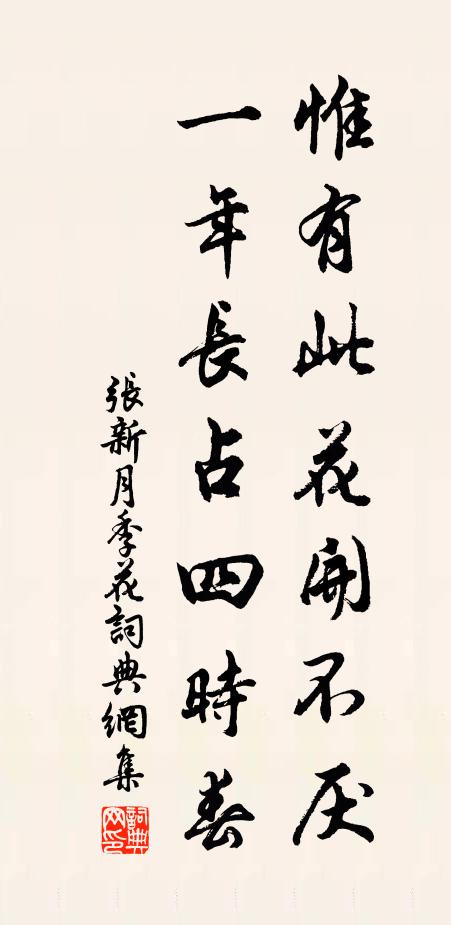 惟有此花開不厌
一年長占四時春
張新月季花詞典網集
詞典网印